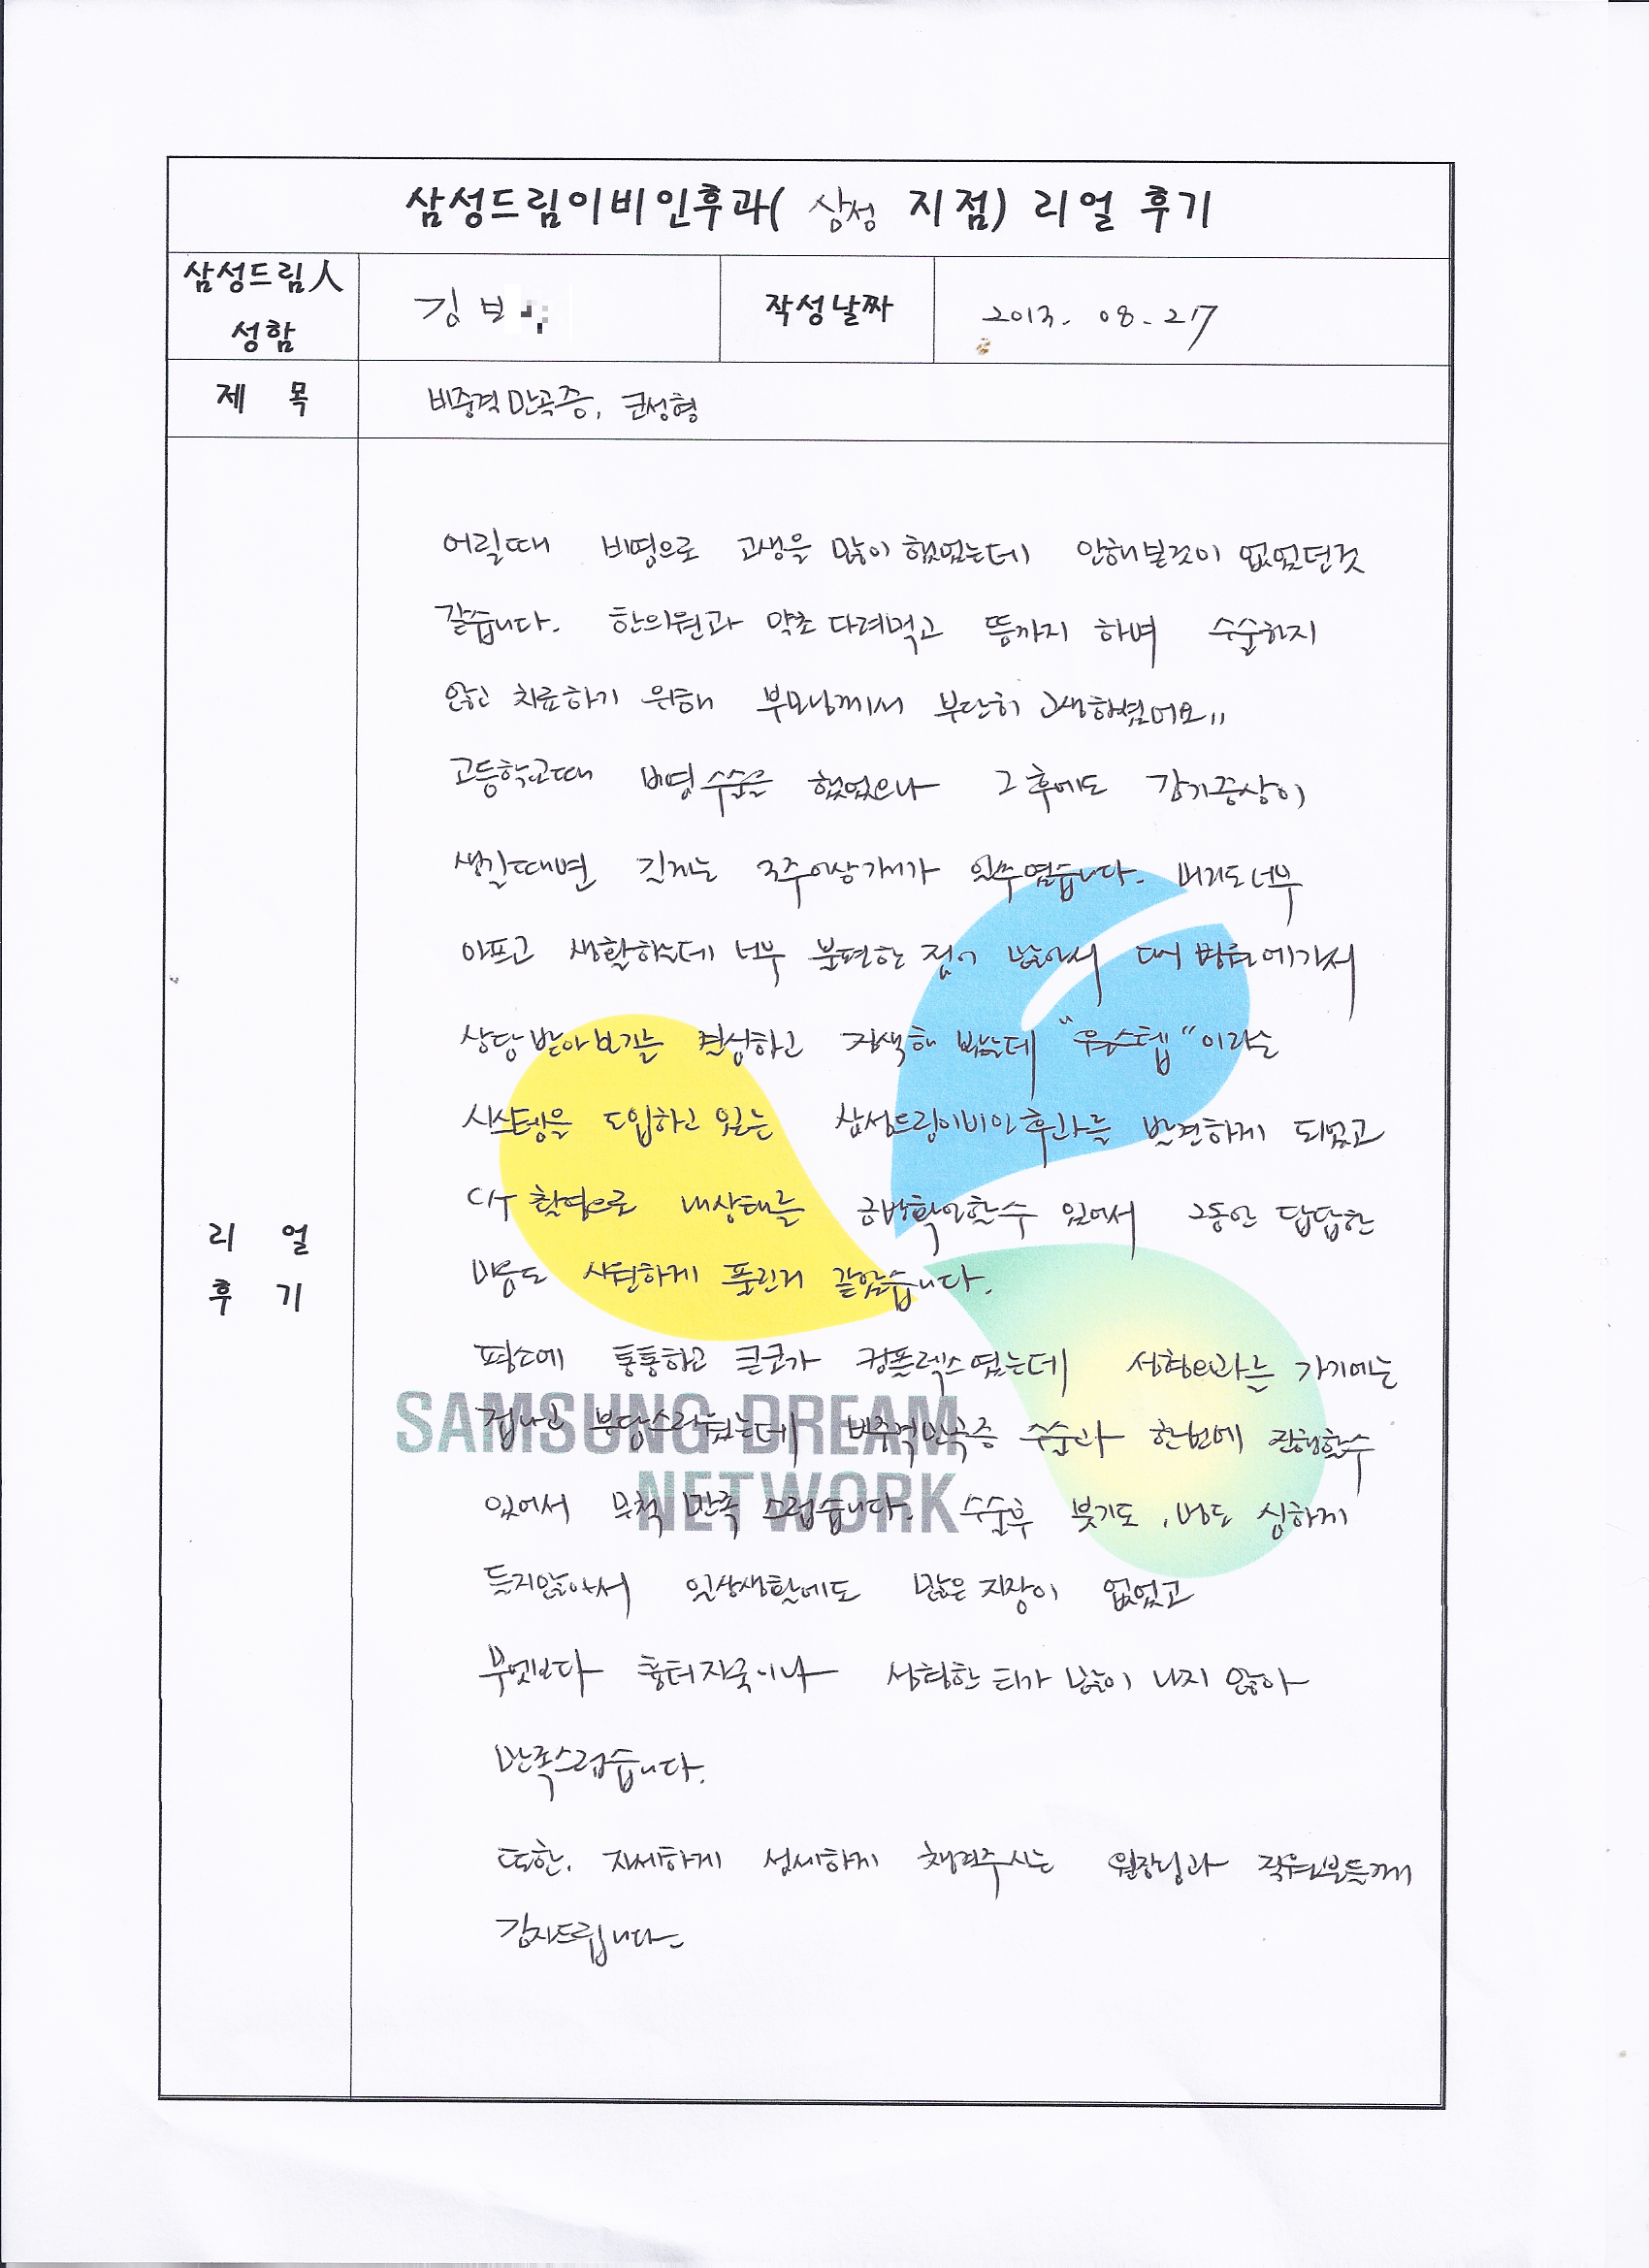 삼성드림이비인후과( 삼성 지점) 리얼 후기
삼성드림人
성함
김보
작성날짜
2013. 08. 27
제 목
비중격만곡증, 코성형
어릴때 비염으로 고생을 많이 했었는데 안해본것이 없었던것
같습니다. 한의원과 약초 다려먹고 뜸까지 하며 수술하지
않고 치료하기 위해 부모님께서 부단히 고생하셨어요
고등학교때 비염수술을 했었으나 그 후에도 감기증상이
생길때면 길게는 3주이상가기가 일쑤였습니다. 머리도너무
아프고 생활하는데 너무 불편한 점이 많아서 대형병원에가서
상담받아보기를 결심하고 검색해 봤는데 "원스텝"이라는
시스템을 도입하고 있는 삼성드림이비인후과를 발견하게 되었고
C/T 촬영으로 내상태를 금방확인할수 있어서 그동안 답답한
마음도 시원하게 풀린거 같았습니다.
평소에 통통하고 큰코가 컴플렉스였는데 성형외과를 가기에는
겁나고 부담스러웠는데 비중격만곡증 수술과 한번에 진행할수
있어서 무척 만족 스럽습니다. 수술후 붓기도, 멍도 심하게
들지않아서 일상생활에도 많은 지장이 없었고
무엇보다 흉터자국이나 성형한 티가 많이 나지 않아
만족스럽습니다.
또한, 자세하게 섬세하게 챙겨주시는 원장님과 직원분들께
감사드립니다.
리 얼
후 기
SAMSUNG DREAM
NETWORK